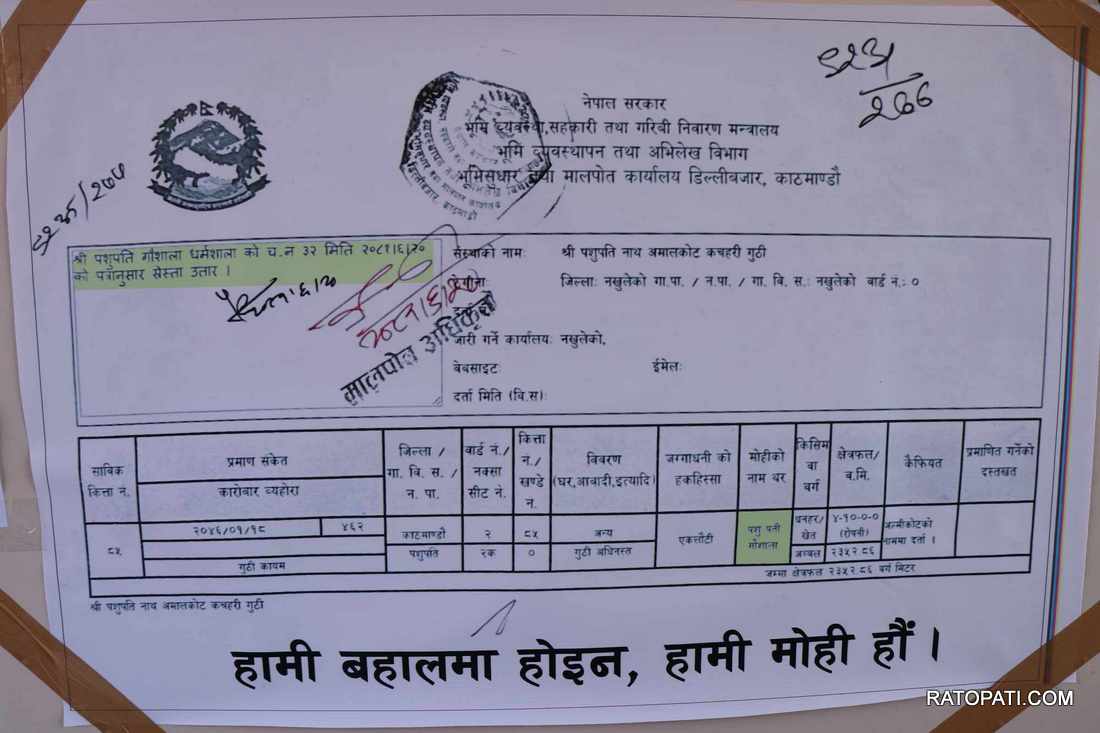 नेपाल सरकार
भूमि व्यवस्था,सहकारी तथा गरिबी निवारण मन्त्रालय
भूमि व्यवस्थापन तथा अभिलेख विभाग
भूमिसुधार तथा मालपोत कार्यालय डिल्लीबजार, काठमाण्डौ
श्री पशुपति गौशाला धर्मशाला को च.न ३२ मिति २०८१।६।२०
को पत्रानुसार स्रेस्ता उतार ।
२०८१।६।२०
मालपोत अधिकृत
संस्थाको नाम: श्री पशुपति नाथ अमालकोट कचहरी गुठी
ठेगाना: जिल्लाः नखुलेको गा.पा. / न.पा. / गा. वि. स.: नखुलेको वार्ड नं.: ०
जारी गर्ने कार्यालयः नखुलेको,
वेबसाइटः ईमेलः
दर्ता मिति (वि.स):
साविक कित्ता नं.
प्रमाण संकेत
कारोबार व्यहोरा
जिल्ला / गा. वि. स. / न. पा.
वार्ड नं./ नक्सा सीट नं.
कित्ता नं./ खण्डे न.
विवरण (घर,आवादी,इत्यादि)
जग्गाधनी को हकहिस्सा
मोहीको नाम थर
किसिम वा वर्ग
क्षेत्रफल/ व.मि.
कैफियत
प्रमाणित गर्नेको दस्तखत
८५
२०४६/०१/१८ ४६२
गुठी कायम
काठमाण्डौ
पशुपति
२
२क
८५
०
अन्य
गुठी अधिनस्त
एकलौटी
पशु पती
गौशाला
धनहर/
खेत
अब्बल
४-१०-०-०
(रोपनी)
२३५२.८६
नाममा दर्ता ।
जम्मा क्षेत्रफल २३५२.८६ वर्ग मिटर
श्री पशुपति नाथ अमालकोट कचहरी गुठी
हामी बहालमा होइन, हामी मोही हौं ।
RATOPATI.COM